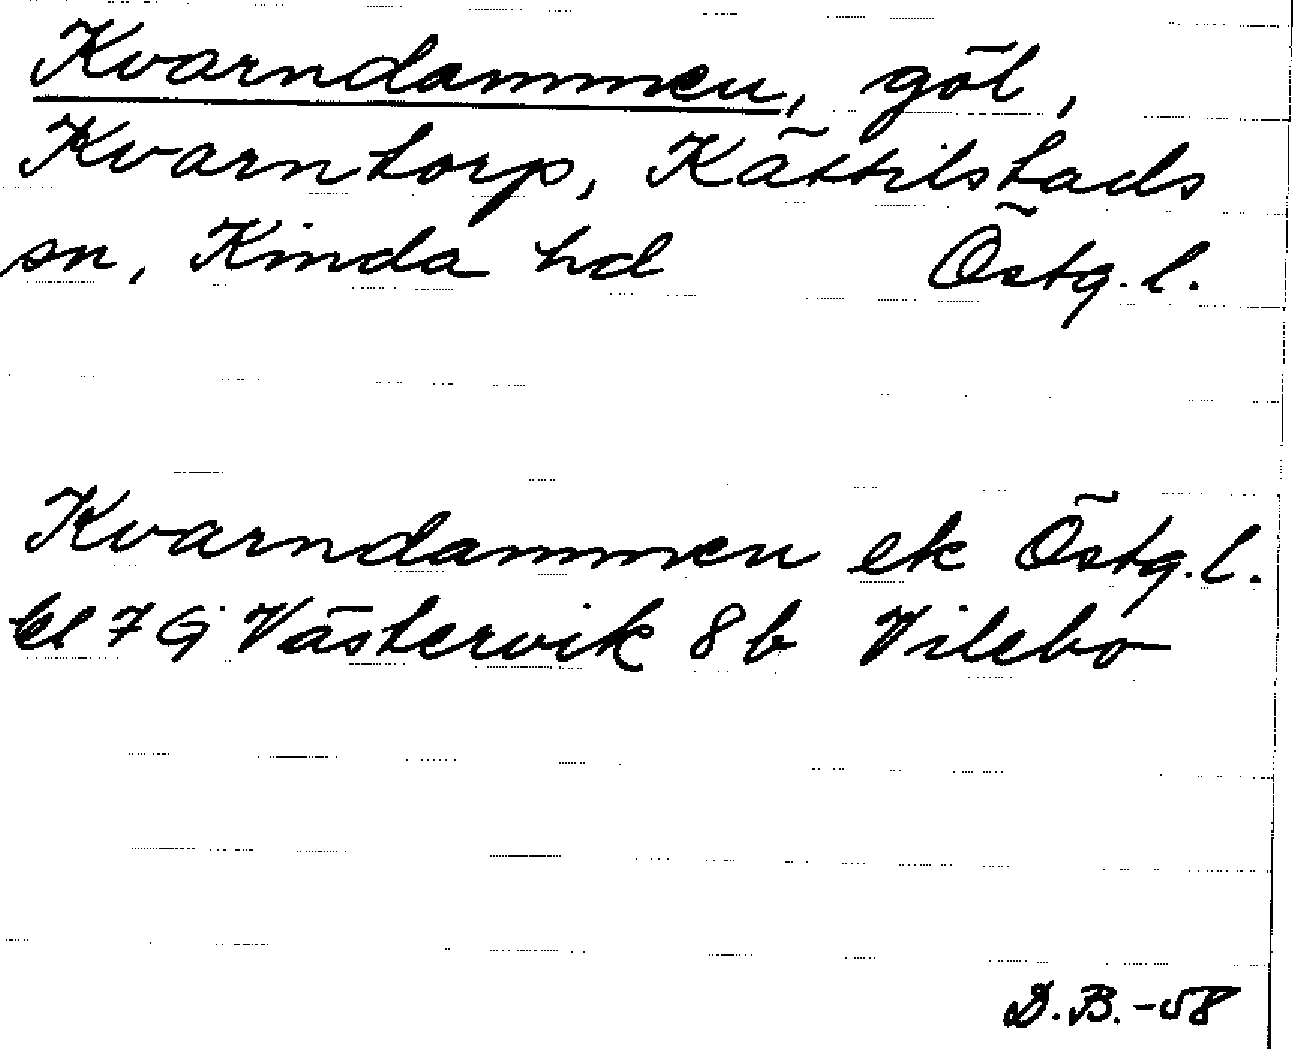 Kvarndammen, göl,
Kvarntorp, Kättilstads
sn, Kinda hd Östg. l.
Kvarndammen ek Östg. l.
bl 7 G Västervik 8 b Vilebo
D.B. -58